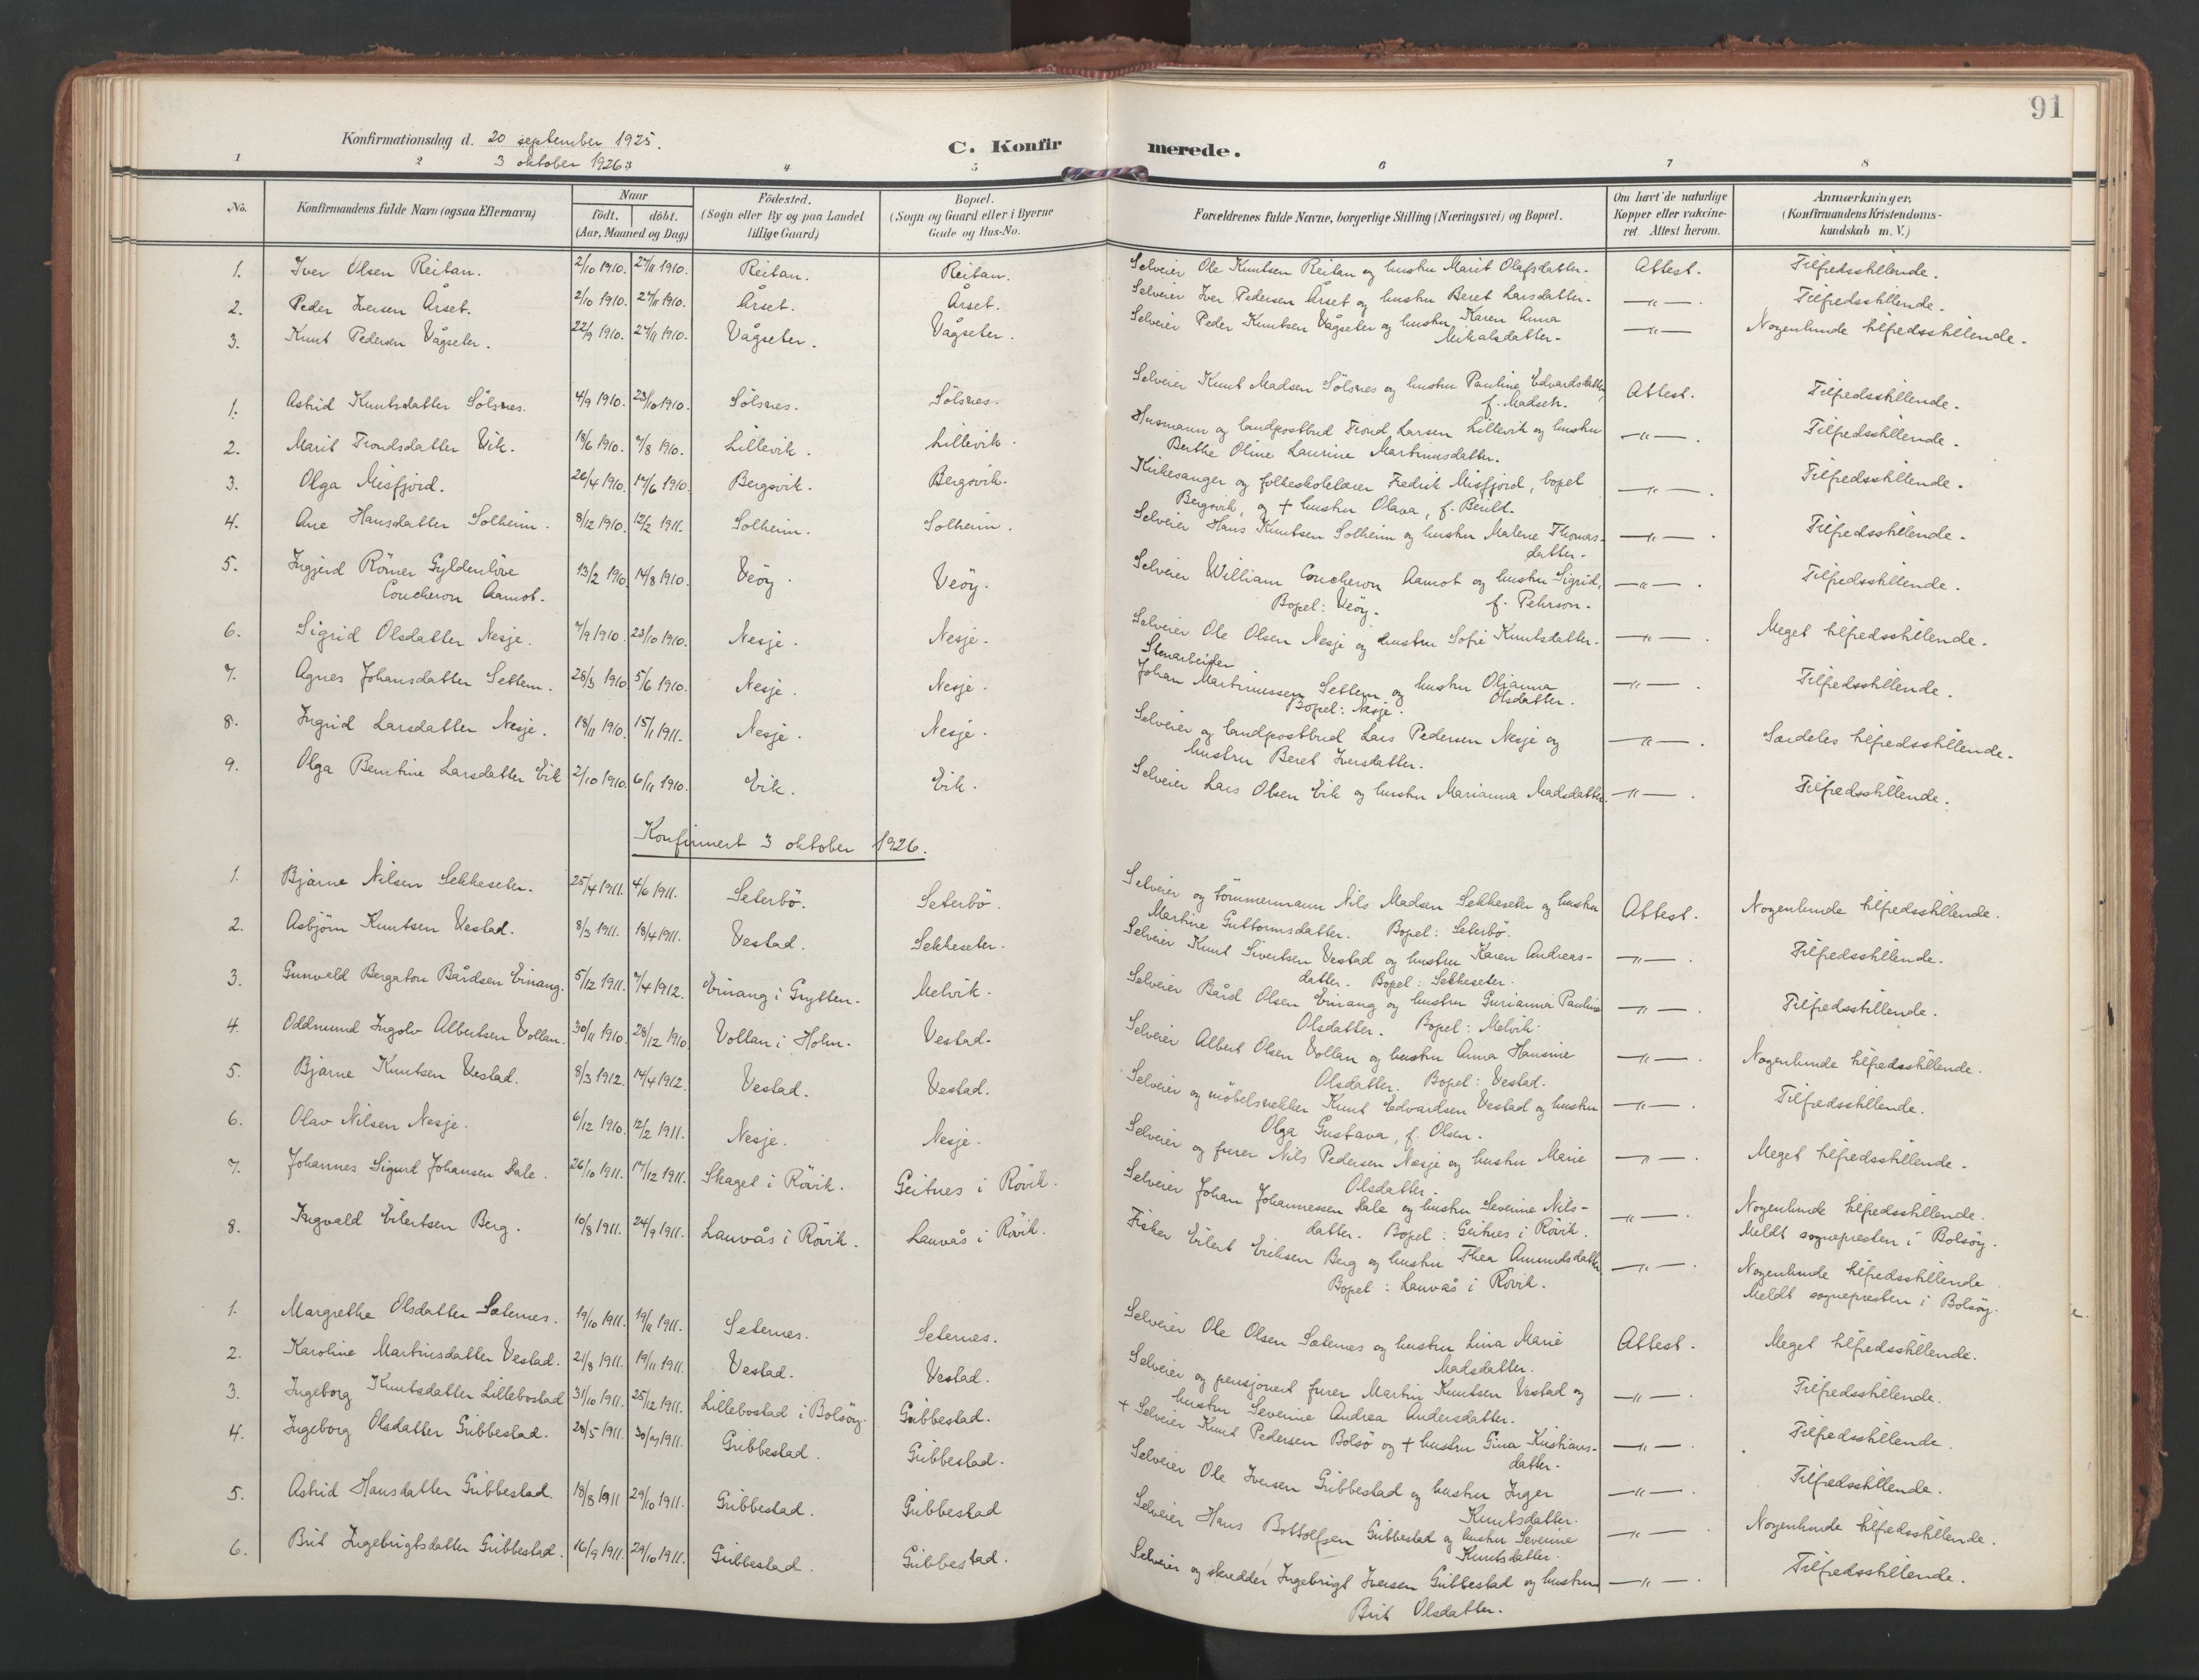 91
Konfirmationsdag d. 20 september 1925.
3 oktober 1926
C. Konfirmerede.
1 2 4 5 6 7 8
No. Konfirmandens fulde Navn (ogsaa Efternavn) Naar født. døbt. (Aar, Maaned og Dag) Fødested. (Sogn eller By og paa Landet tillige Gaard) Bopæl. (Sogn og Gaard eller i Byerne Gade og Hus-No. Forældrenes fulde Navne, borgerlige Stilling (Næringsvei) og Bopæl. Om havt de naturlige Kopper eller vakcineret. Attest herom. Anmærkninger. (Konfirmandens Kristendomskundskab m. V.)
1. Iver Olsen Reitan. 2/10 1910. 27/11 1910. Reitan. Reitan. Selveier Ole Knutsen Reitan og hustru Marit Olafsdatter. Attest. Tilfredsstillende.
2. Peder Iversen Årset. 2/10 1910. 27/11 1910. Årset. Årset. Selveier Iver Pedersen Årset og hustru Beret Larsdatter. —"— Tilfredsstillende.
3. Knut Pedersen Vågseter. 22/9 1910. 27/11 1910. Vågseter. Vågseter. Selveier Peder Knutsen Vågseter og hustru Karen Anna
Mikalsdatter. —"— Nogenlunde tilfredsstillende.
1. Astrid Knutsdatter Sölsnes. 4/9 1910. 23/10 1910. Sölsnes. Sölsnes. Selveier Knut Madsen Sölsnes og hustru Pauline Edvardsdatter,
f. Madsen. Attest. Tilfredsstillende.
2. Marit Trondsdatter Vik. 18/6 1910. 7/8 1910. Lillevik. Lillevik. Husmann og landpostbud Trond Larsen Lillevik og hustru
Berthe Oline Laurine Martinusdatter. —"— Tilfredsstillende.
3. Olga Misfjord. 26/4 1910. 17/6 1910. Bergsvik. Bergsvik. Kirkesanger og folkeskolelærer Fredrik Misfjord, bopel
Bergsvik, og + hustru Olava, f. —"— Tilfredsstillende.
4. Ane Hansdatter Solheim. 8/12 1910. 12/2 1911. Solheim. Solheim. Selveier Hans Knutsen Solheim og hustru Malene Thomas-
datter. —"— Tilfredsstillende.
5. Ingjerd Römer Gyldenlöve
Coucheron Aamot. 13/2 1910 14/8 1910. Veöy. Veöy. Selveier William Coucheron Aamot og hustru Sigrid,
Bopel: Veöy. f. Pehrson. —"— Tilfredsstillende.
6. Sigrid Olsdatter Nesje. 7/9 1910. 23/10 1910. Nesje. Nesje. Selveier Ole Olsen Nesje og hustru Sofie Knutsdatter. —"— Meget tilfredsstillende.
7. Agnes Johansdatter Settem. 28/3 1910 5/6 1910. Nesje. Nesje. Stenarbeider
Johan Martinussen Settem og hustru Oljanna
Olsdatter.
Bopel: Nesje. —"— Tilfredsstillende.
8. Ingrid Larsdatter Nesje. 18/11 1910. 15/1 1911. Nesje. Nesje. Selveier og landpostbud Lars Pedersen Nesje og
hustru Beret Iversdatter. —"— Særdeles tilfredsstillende.
9. Olga Berntine Larsdatter Eik 2/10 1910. 6/11 1910. Eik. Eik. Selveier Lars Olsen Eik og hustru Marianna Madsdatter. —"— Tilfredsstillende.
Konfirmert 3 oktober 1926.
1. Bjarne Nilsen Sekkeseter. 25/4 1911. 4/6 1911. Seterbö. Seterbö. Selveier og tömmermann Nils Madsen Sekkeseter og hustru
Martine Guttormsdatter. Bopel: Seterbö. Attest. Nogenlunde tilfredsstillende.
2. Asbjörn Knutsen Vestad. 8/3 1911. 18/4 1911. Vestad. Sekkeseter. Selveier Knut Sivertsen Vestad og hustru Karen Andreas-
datter. Bopel: Sekkeseter. —"— Tilfredsstillende.
3. Gunvald Bergaton Bårdsen Einang. 5/12 1911. 7/4 1912. Einang i Grytten. Melvik. Selveier Bård Olsen Einang og hustru Gurianna Pauline
Olsdatter. Bopel: Melvik. —"— Tilfredsstillende.
4. Oddmund Ingolv Albertsen Vollan. 30/11 1910. 28/12 1910. Vollan i Holm. Vestad. Selveier Albert Olsen Vollan og hustru Anna Hansine
Olsdatter. Bopel: Vestad. —"— Nogenlunde tilfredsstillende.
5. Bjarne Knutsen Vestad. 8/3 1912. 14/4 1912. Vestad. Vestad. Selveier og möbelsnekker Knut Edvardsen Vestad og hustru
Olga Gustava, f. Olsen. —"— Tilfredsstillende.
6. Olav Nilsen Nesje. 6/12 1910. 12/2 1911. Nesje. Nesje. Selveier og furer Nils Pedersen Nesje og hustru Marie
Olsdatter. —"— Meget tilfredsstillende.
7. Johannes Sigurd Johansen Dale. 26/10 1911. 17/12 1911. Skaget i Rövik. Geitnes i Rövik. Selveier Johan Johannessen Dale og hustru Severine Nils-
datter. Bopel: Geitnes i Rövik. —"— Nogenlunde tilfredsstillende.
Meldt sognepresten i Bolsöy.
8. Ingvald Eilertsen Berg. 10/8 1911. 24/9 1911. Lauvås i Rövik. Lauvås i Rövik. Fisker Eilert Eriksen Berg og hustru Thea Amundsdatter.
Bopel: Lauvås i Rövik. —"— Nogenlunde tilfredsstillende.
Meldt sognepresten i Bolsöy.
1. Margrethe Olsdatter Sæternes. 19/10 1911. 19/11 1911. Seternes. Seternes. Selveier Ole Olsen Sæternes og hustru Lina Marie
Madsdatter. Attest. Meget tilfredsstillende.
2. Karoline Martinsdatter Vestad. 21/8 1911. 19/11 1911. Vestad. Vestad. Selveier og pensjonert furer Martin Knutsen Vestad og
hustru Severine Andrea Andersdatter. —"— Tilfredsstillende.
3. Ingeborg Knutsdatter Lillebostad 31/10 1911. 25/12 1911. Lillebostad i Bolsöy. Gribbestad. + Selveier Knut Pedersen Bolsö og + hustru Gina Kristians-
datter. —"— Tilfredsstillende.
4. Ingeborg Olsdatter Gribbestad. 28/5 1911. 30/7 1911. Gribbestad. Gribbestad. Selveier Ole Iversen Gribbestad og hustru Inger
Knutsdatter. —"— Tilfredsstillende.
5. Astrid Hansdatter Gribbestad. 18/8 1911 29/10 1911. Gribbestad. Gribbestad Selveier Hans Bottolfsen Gribbestad og hustru Severine
Knutsdatter. —"— Nogenlunde tilfredsstillende.
6. Brit Ingebrigtsdatter Gribbestad. 16/9 1911. 29/10 1911. Gribbestad. Gribbestad. Selveier og skredder Ingebrigt Iversen Gribbestad og hustru
Brit Olsdatter. —"— Tilfredsstillende.